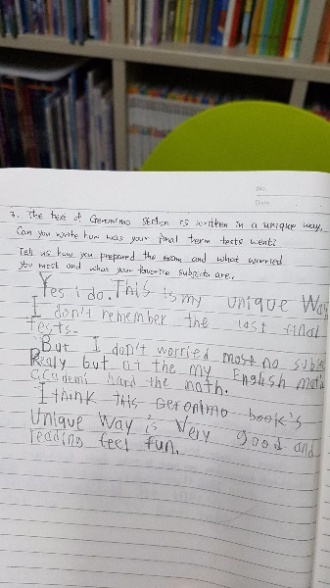 No.
Date
7. The text of Geronimo Stilton is written in a unique way.
Can you write how was your final term tests went?
Tell us how you prepared the exam and what worried
you most and what your favorite subjects are.
Yes i do. This is my unique Way
I don't remember the last final
tests.
But I don't worried most no
Realy but at the my English
academi hard the math.
I think this Geronimo book's
Unique Way is Very good and
reading feel fun.